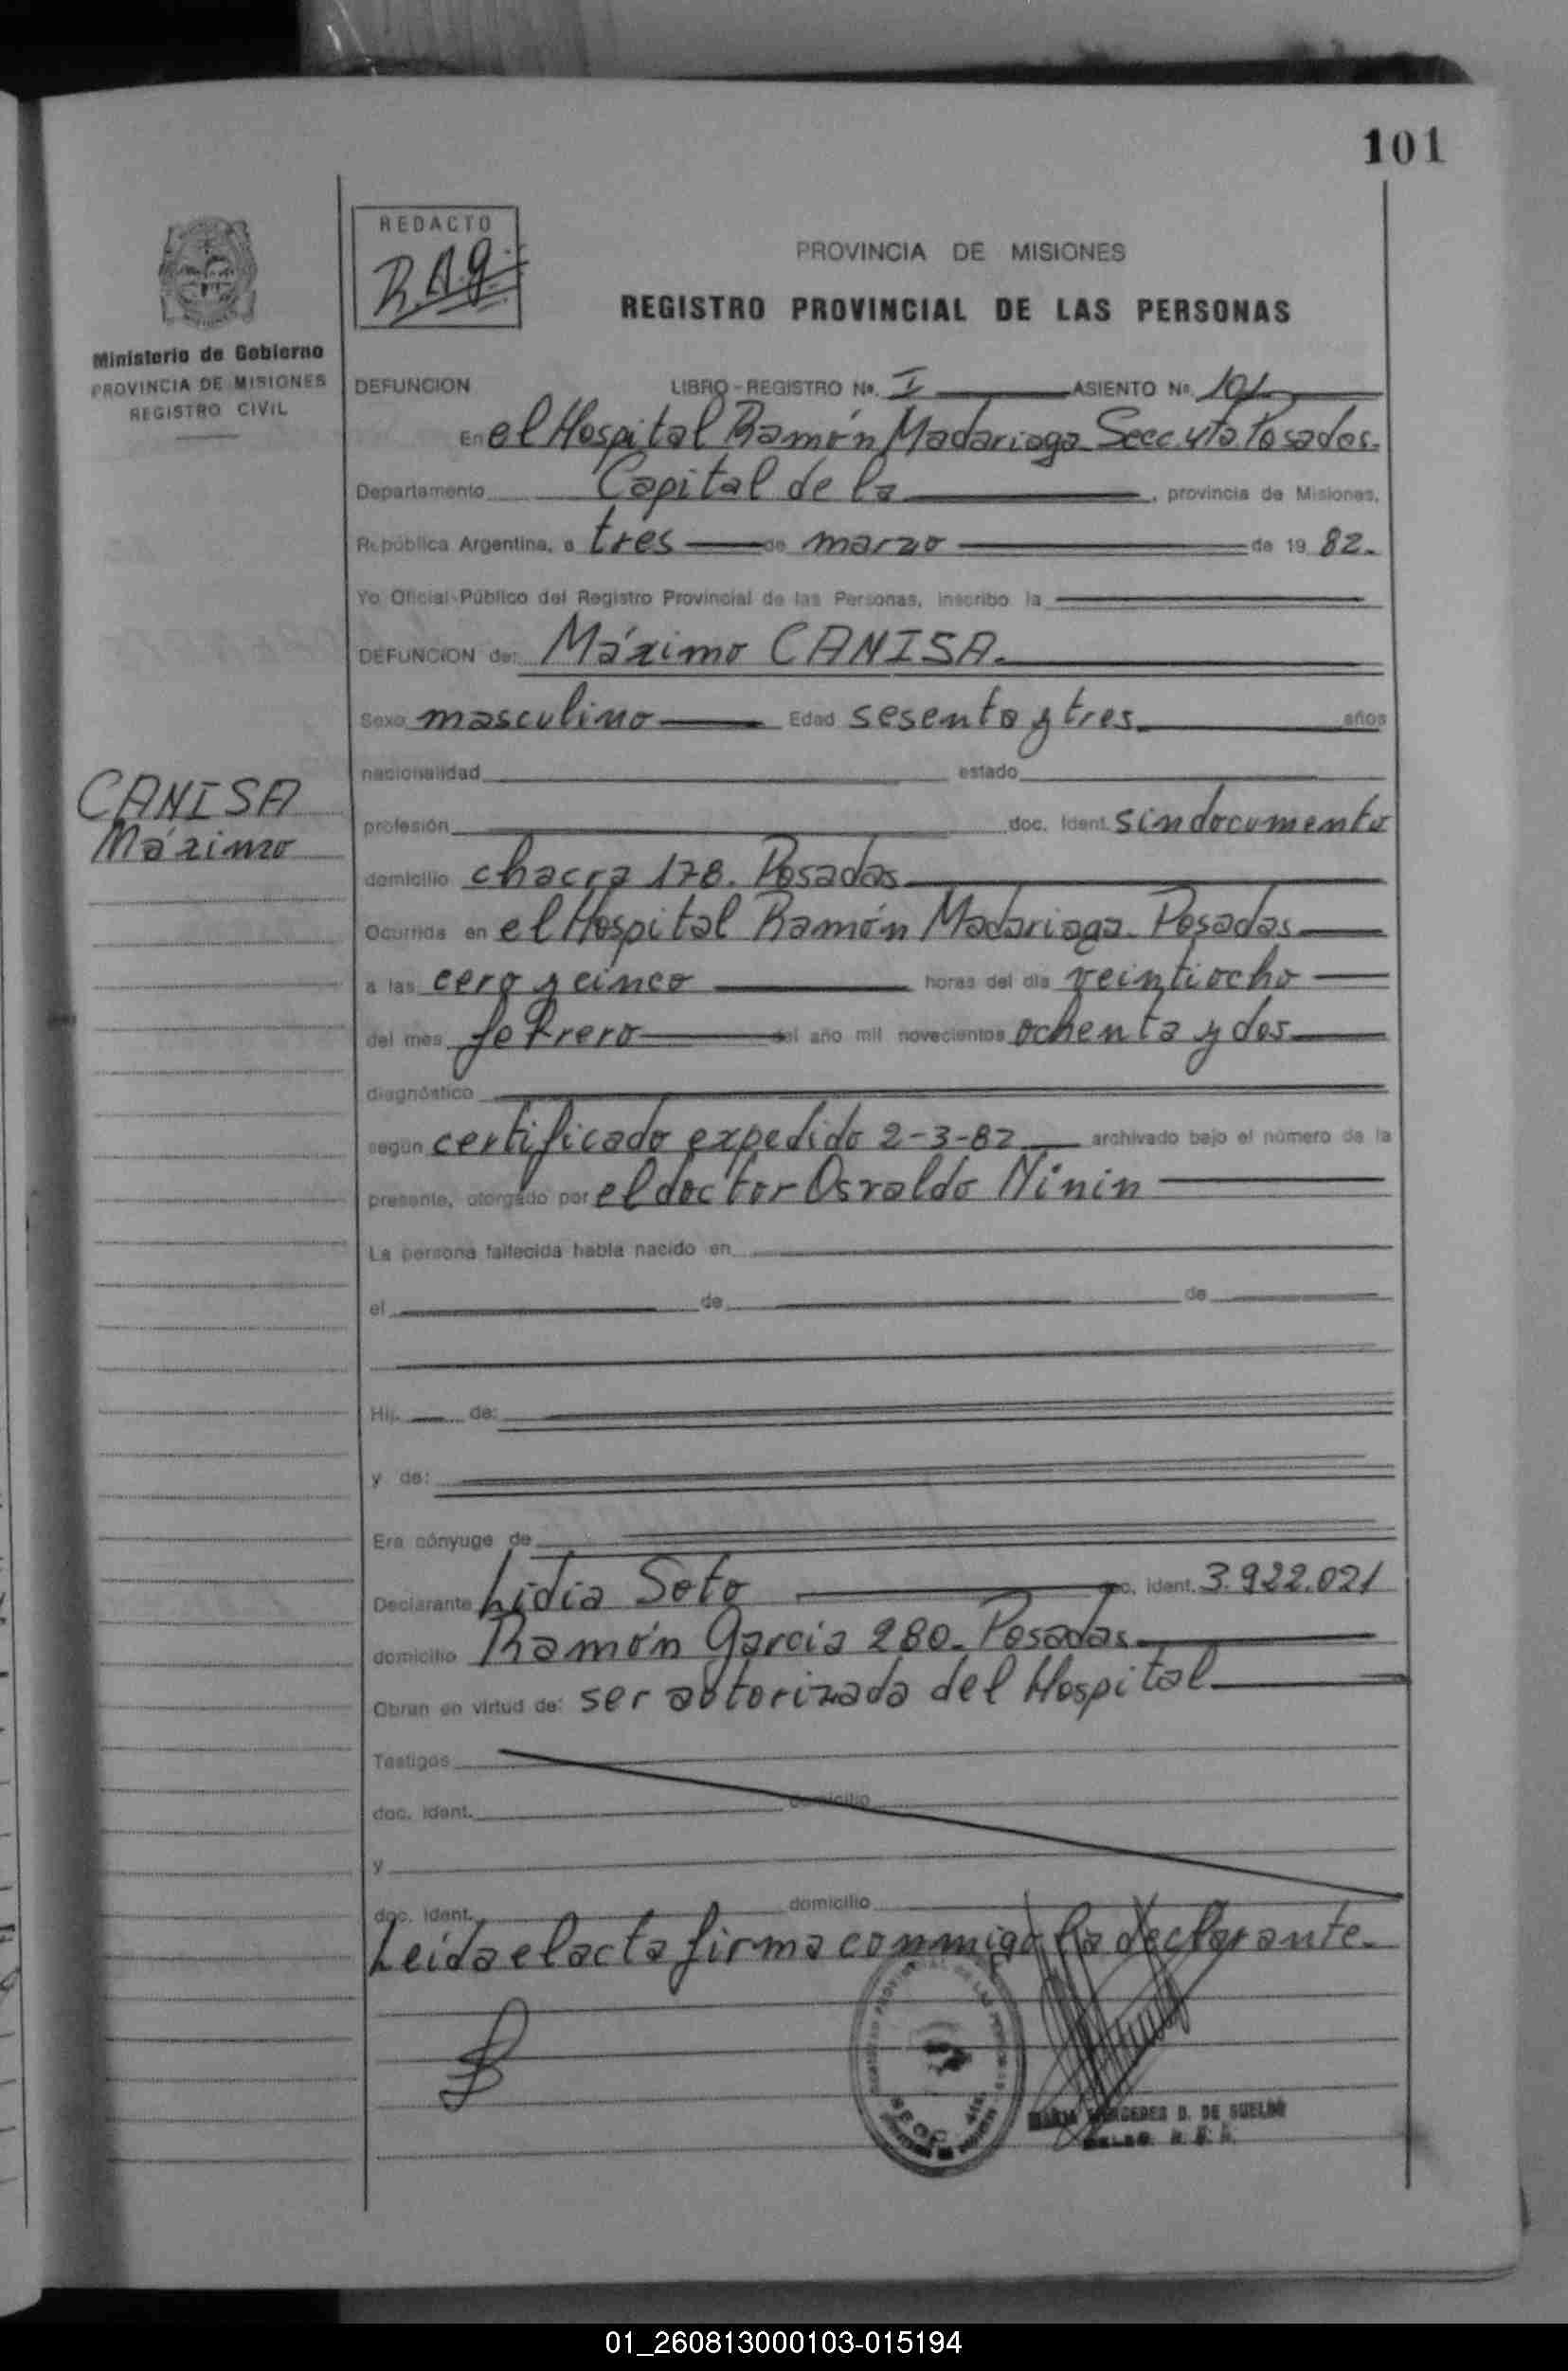 101
REDACTO
R.A.g.
PROVINCIA DE MISIONES
REGISTRO PROVINCIAL DE LAS PERSONAS
Ministerio de Gobierno
PROVINCIA DE MISIONES
REGISTRO CIVIL
DEFUNCION LIBRO-REGISTRO Nº. I ASIENTO Nº. 101
En el Hospital Ramón Madariaga Secc. 4ta. Posadas.
Departamento Capital de la , provincia de Misiones,
República Argentina, a tres de marzo de 19 82.
Yo Oficial Público del Registro Provincial de las Personas, inscribo la
DEFUNCION de: Máximo CANISA.
Sexo masculino Edad sesenta y tres años
nacionalidad estado
CANISA
Máximo
profesión doc. ident. sin documento
domicilio chacra 178. Posadas
Ocurrida en el Hospital Ramón Madariaga. Posadas
a las cero y cinco horas del día veintiocho
del mes febrero del año mil novecientos ochenta y dos
diagnóstico
según certificado expedido 2-3-82 archivado bajo el número de la
presente, otorgado por el doctor Osvaldo Ninin
La persona fallecida había nacido en
el de de
Hij de:
y de:
Era cónyuge de
Declarante Lidia Soto doc. ident. 3.922.021
domicilio Ramón Garcia 280. Posadas
Obran en virtud de: ser autorizada del Hospital
Testigos
doc. ident. domicilio
y
doc. ident. domicilio
Leída el acta firma conmigo la declarante.
MARIA MERCEDES D. DE SUELDO
01_260813000103-015194